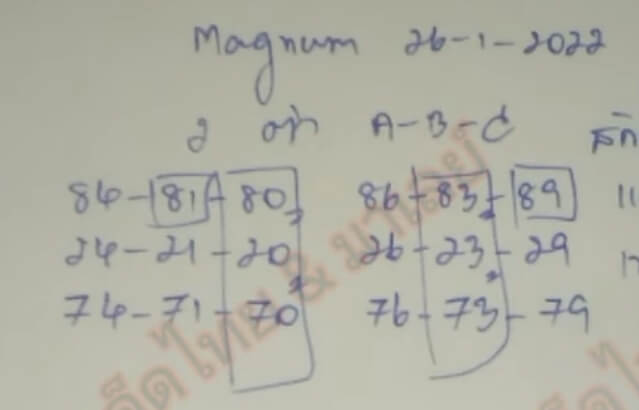 Magnum 26-1-2022
2 ตัว A-B-C
84-81-80 86-83-89 11
24-21-20 26-23-29
74-71-70 76-73-79
ไทย & มาเลย์